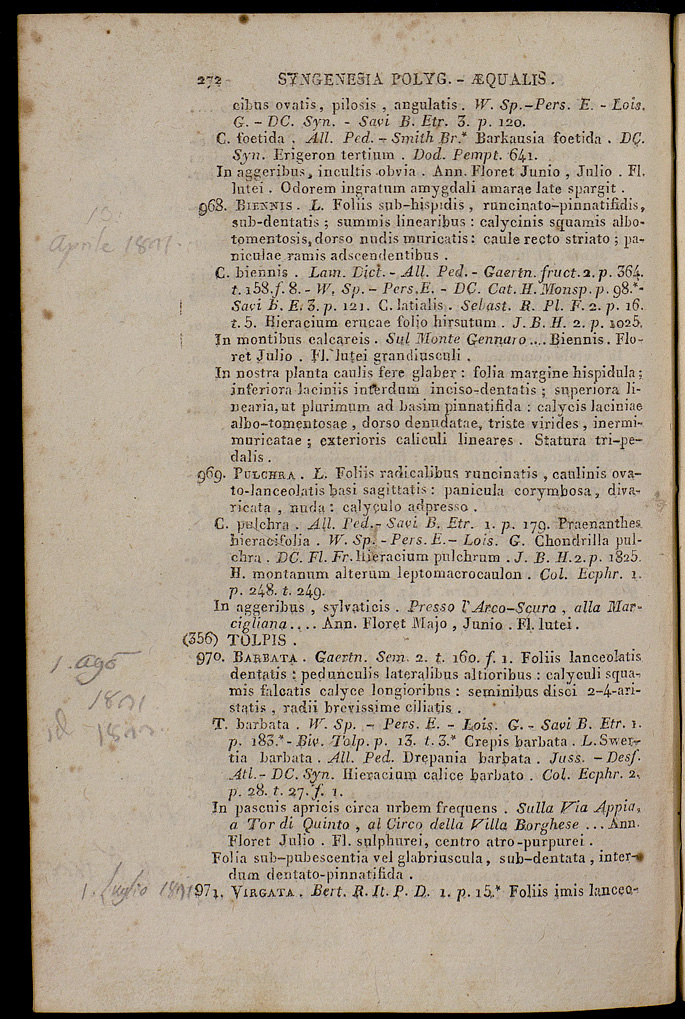 272 SYNGENESIA POLYG. - ÆQUALIS.
cibus ovatis, pilosis, angulatis. W. Sp.-Pers. E. - Lois.
G. - DC. Syn. - Savi B. Etr. 3. p. 120.
C. foetida. All. Ped. - Smith Br.* Barkausia foetida. DC.
Syn. Erigeron tertium. Dod. Pempt. 641.
In aggeribus, incultis obvia. Ann. Floret Junio, Julio. Fl.
lutei. Odorem ingratum amygdali amarae late spargit.
968. BIENNIS. L. Foliis sub-hispidis, runcinato-pinnatifidis,
sub-dentatis; summis linearibus: calycinis squamis albo-
aprile 1801
tomentosis, dorso nudis muricatis: caule recto striato; pa-
niculae ramis adscendentibus.
C. biennis. Lam. Dict. - All. Ped. - Gaertn. fruct. 2. p. 364.
t. 158. f. 8. - W. Sp. - Pers. E. - DC. Cat. H. Monsp. p. 98.*-
Savi B. E. 3. p. 121. C. latialis. Sebast. R. Pl. F. 2. p. 16.
t. 5. Hieracium erucae folio hirsutum. J. B. H. 2. p. 1025.
In montibus calcareis. Sul Monte Gennaro.... Biennis. Flo-
ret Julio. Fl. lutei grandiusculi.
In nostra planta caulis fere glaber: folia margine hispidula;
inferiora laciniis interdum inciso-dentatis; superiora li-
nearia, ut plurimum ad basim pinnatifida: calycis laciniae
albo-tomentosae, dorso denudatae, triste virides, inermi-
muricatae; exterioris caliculi lineares. Statura tri-pe-
dalis.
969. PULCHRA. L. Foliis radicalibus runcinatis, caulinis ova-
to-lanceolatis basi sagittatis: panicula corymbosa, diva-
ricata, nuda: calyculo adpresso.
C. pulchra. All. Ped.- Savi B. Etr. 1. p. 179. Praenanthes
hieracifolia. W. Sp. - Pers. E. - Lois. G. Chondrilla pul-
chra. DC. Fl. Fr. Hieracium pulchrum. J. B. H. 2. p. 1825.
H. montanum alterum leptomacrocaulon. Col. Ecphr. 1.
p. 248. t. 249.
In aggeribus, sylvaticis. Presso l'Arco-Scuro, alla Mar-
cigliana.... Ann. Floret Majo, Junio. Fl. lutei.
(356) TOLPIS.
1. ago
970. BARBATA. Gaertn. Sem. 2. t. 160. f. 1. Foliis lanceolatis
dentatis: pedunculis lateralibus altioribus: calyculi squa-
1801
mis falcatis calyce longioribus: seminibus disci 2-4-ari-
statis, radii brevissime ciliatis.
T. barbata. W. Sp. - Pers. E. - Lois. G. - Savi B. Etr. 1.
p. 183.*- Biv. Tolp. p. 13. t. 3.* Crepis barbata. L. Swer-
tia barbata. All. Ped. Drepania barbata. Juss. - Desf.
Atl. - DC. Syn. Hieracium calice barbato. Col. Ecphr. 2.
p. 28. t. 27. f. 1.
In pascuis apricis circa urbem frequens. Sulla Via Appia,
a Tor di Quinto, al Circo della Villa Borghese... Ann.
Floret Julio. Fl. sulphurei, centro atro-purpurei.
Folia sub-pubescentia vel glabriuscula, sub-dentata, inter-
dum dentato-pinnatifida.
1. Luglio 1801
971. VIRGATA. Bert. R. It. P. D. 1. p. 15.* Foliis imis lanceo-